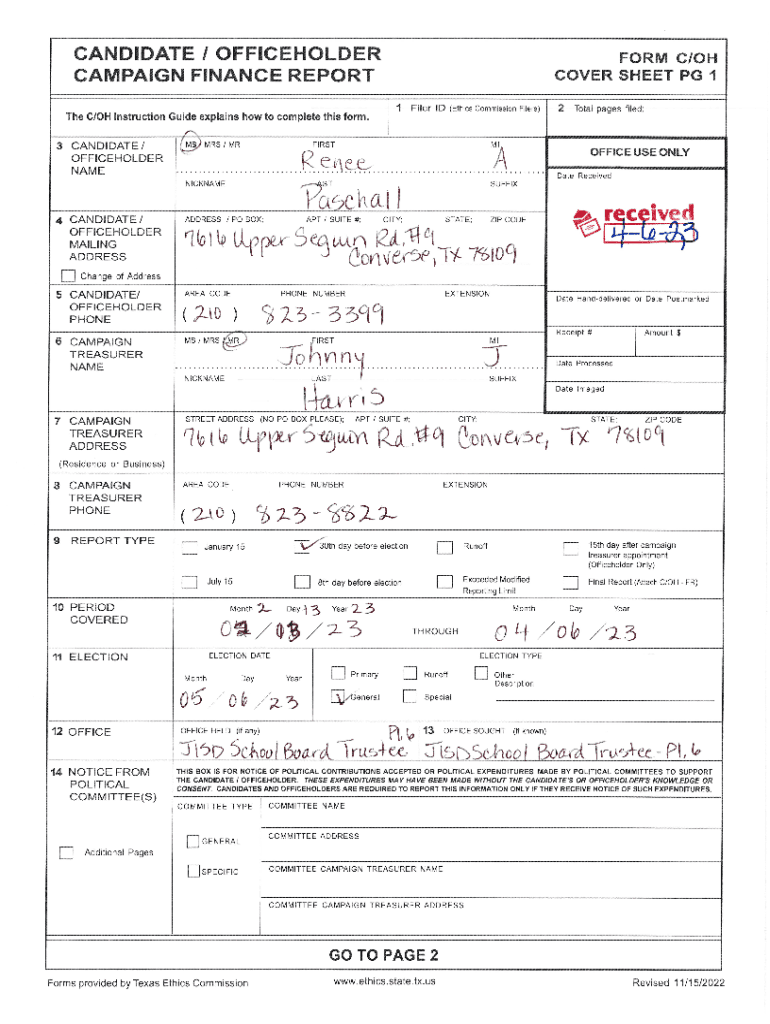 CANDIDATE / OFFICEHOLDER
CAMPAIGN FINANCE REPORT
FORM C/OH
COVER SHEET PG 1
The C/OH Instruction Guide explains how to complete this form.
1 Filer ID (Ethics Commission Filers)
2 Total pages filed:
3 CANDIDATE / OFFICEHOLDER NAME
MS / MRS / MR FIRST MI
Renee A
NICKNAME LAST SUFFIX
Paschall
OFFICE USE ONLY
Date Received
received
4-6-23
4 CANDIDATE / OFFICEHOLDER MAILING ADDRESS
Change of Address
ADDRESS / PO BOX; APT / SUITE #; CITY; STATE; ZIP CODE
7616 Upper Seguin Rd. #9
Converse, TX 78109
5 CANDIDATE/ OFFICEHOLDER PHONE
AREA CODE PHONE NUMBER EXTENSION
(210) 823-3399
Date Hand-delivered or Date Postmarked
Receipt # Amount $
Date Processed
Date Imaged
6 CAMPAIGN TREASURER NAME
MS / MRS / MR FIRST MI
Johnny J
NICKNAME LAST SUFFIX
Harris
7 CAMPAIGN TREASURER ADDRESS
(Residence or Business)
STREET ADDRESS (NO PO BOX PLEASE); APT / SUITE #; CITY; STATE; ZIP CODE
7616 Upper Seguin Rd. #9 Converse, TX 78109
8 CAMPAIGN TREASURER PHONE
AREA CODE PHONE NUMBER EXTENSION
(210) 823-8822
9 REPORT TYPE
January 15 30th day before election Runoff 15th day after campaign treasurer appointment (Officeholder Only)
July 15 8th day before election Exceeded Modified Reporting Limit Final Report (Attach C/OH - FR)
10 PERIOD COVERED
Month 2 Day 13 Year 23 Month Day Year
/ / 23 THROUGH 04 / 06 / 23
11 ELECTION
ELECTION DATE ELECTION TYPE
Month Day Year Primary Runoff Other Description
05 / 06 / 23 General Special
12 OFFICE
OFFICE HELD (if any) Pl. 6
JISD School Board Trustee
13 OFFICE SOUGHT (if known)
JISD School Board Trustee - Pl. 6
14 NOTICE FROM POLITICAL COMMITTEE(S)
Additional Pages
THIS BOX IS FOR NOTICE OF POLITICAL CONTRIBUTIONS ACCEPTED OR POLITICAL EXPENDITURES MADE BY POLITICAL COMMITTEES TO SUPPORT
THE CANDIDATE / OFFICEHOLDER. THESE EXPENDITURES MAY HAVE BEEN MADE WITHOUT THE CANDIDATE'S OR OFFICEHOLDER'S KNOWLEDGE OR
CONSENT. CANDIDATES AND OFFICEHOLDERS ARE REQUIRED TO REPORT THIS INFORMATION ONLY IF THEY RECEIVE NOTICE OF SUCH EXPENDITURES.
COMMITTEE TYPE COMMITTEE NAME
GENERAL
COMMITTEE ADDRESS
SPECIFIC
COMMITTEE CAMPAIGN TREASURER NAME
COMMITTEE CAMPAIGN TREASURER ADDRESS
GO TO PAGE 2
Forms provided by Texas Ethics Commission www.ethics.state.tx.us Revised 11/15/2022